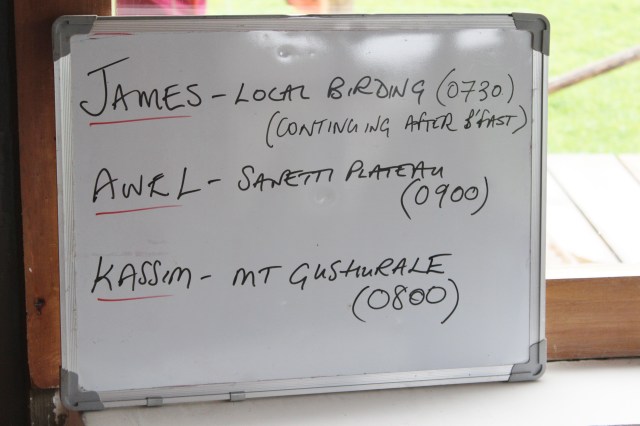 JAMES - LOCAL BIRDING (0730)
(CONTINUING AFTER B'FAST)
AWEL - SANETTI PLATEAU
(0900)
KASSIM - MT GUSHURALE
(0800)